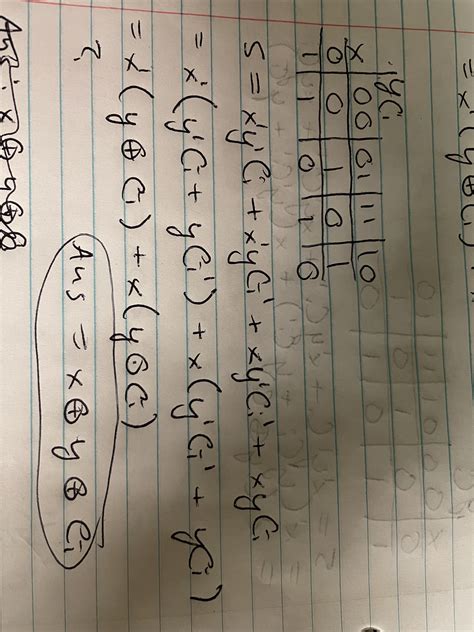 = x'(y⊕Ci)
yCi
x 00 01 11 10
0 0 1 0 1
1 1 0 1 0
S = x'y'Ci + x'yCi' + xy'Ci' + xyCi
= x'(y'Ci + yCi') + x(y'Ci' + yCi)
= x'(y⊕Ci) + x(y⊙Ci)
?
Ans = x⊕y⊕Ci